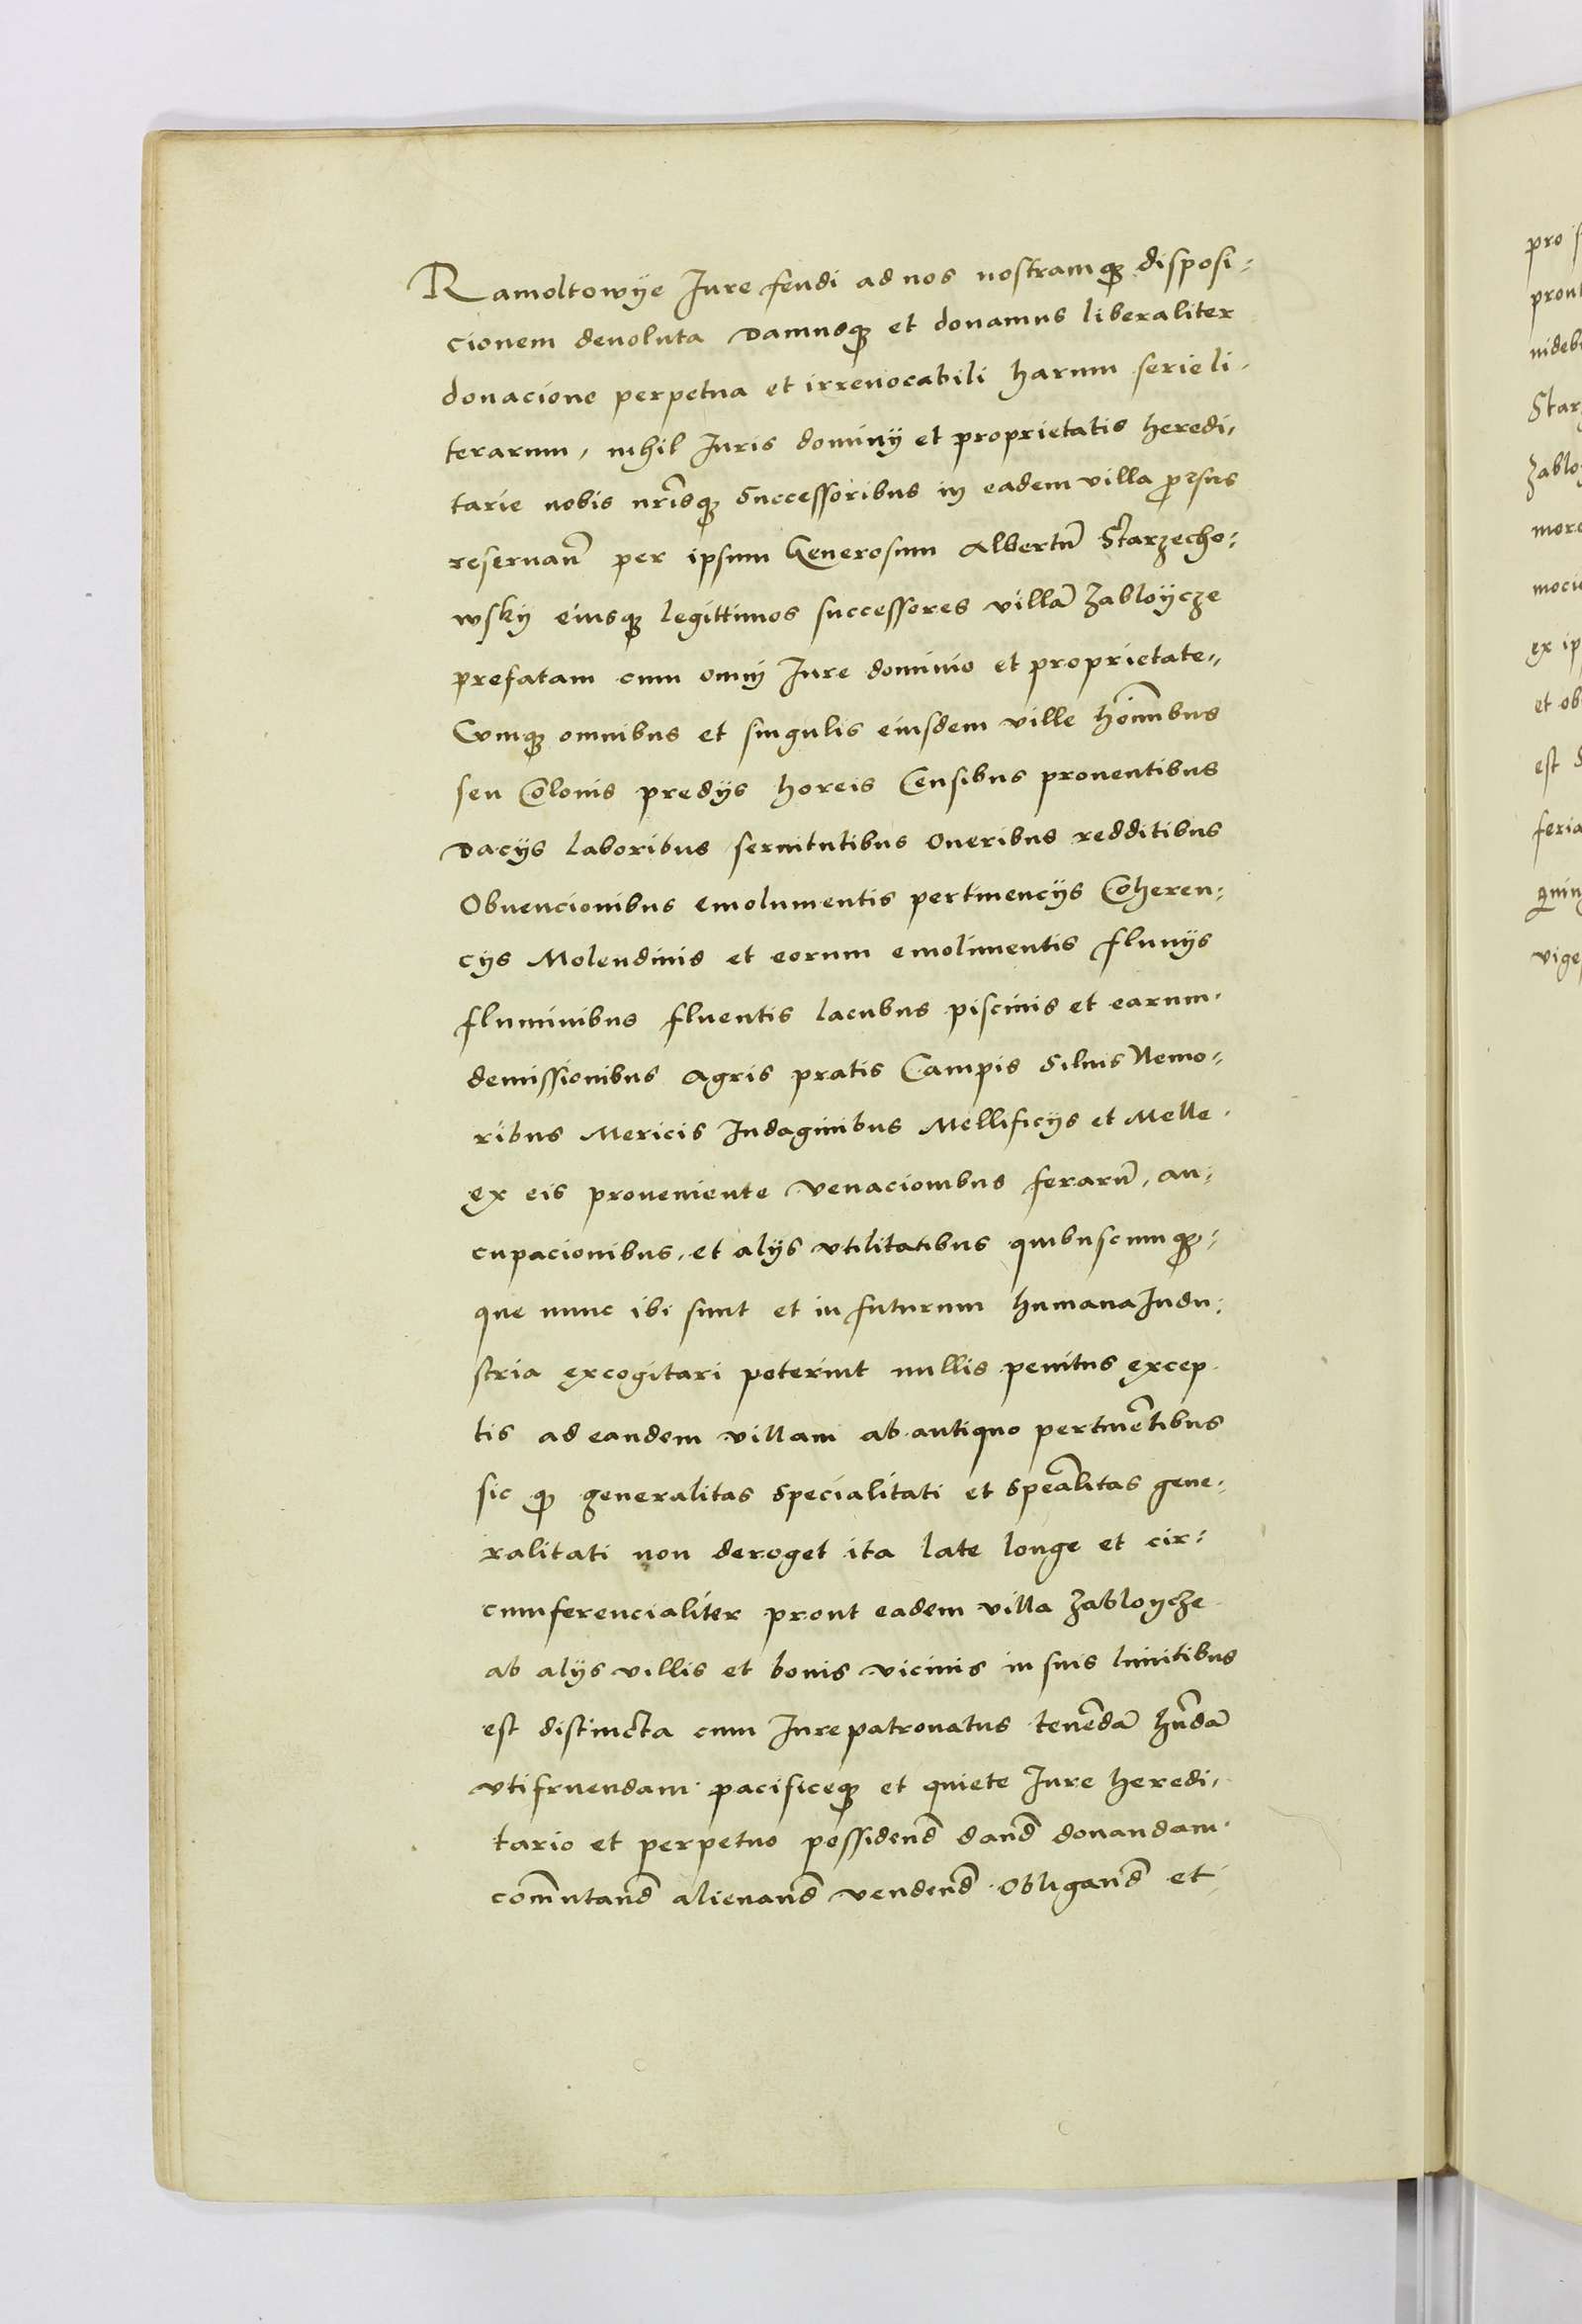 Ramoltowÿe Iure feudi ad nos nostramqʒ disposi:
cionem deuoluta Damusqʒ et donamus liberaliter
donacione perpetua et irreuocabili harum serie li-
terarum, nihil Iuris dominÿ et proprietatis heredi,
tarie nobis nr̃isqʒ Successoribus in eadem villa prorsus
reseruan̄ per ipsum Generosum Albertu̅ Starzecho:
wskÿ eiusqʒ legittimos successores villa̅ Zabloÿcze
prefatam cum omni Iure dominio et proprietate,,
Cumqʒ omnibus et singulis eiusdem ville ho͞inibus
seu Colonis predÿs horeis Censibus prouentibus
Dacÿs laboribus seruitutibus Oneribus redditibus
Obuencionibus emolumentis pertinencÿs Coheren:
cÿs Molendinis et eorum emolimentis fluuÿs
fluminibus fluentis lacubus piscinis et earum
demissionibus Agris pratis Campis Siluis Nemo:
ribus Mericis Indaginibus Mellificÿs et Melle
ex eis proueniente Venacionibus feraru̅, au:
cupacionibus, et alÿs vtilitatibus quibuscumqʒ:
que nunc ibi sunt et in futurum humana Indu:
stria excogitari poterint nullis penitus excep
tis ad eandem villam ab antiquo pertine̅tibus
sic qʒ generalitas Specialitati et Spe͞alitas gene:
ralitati non deroget ita late longe et cir:
cumferencialiter prout eadem villa Zabloycze
ab alÿs villis et bonis vicinis in suis limitibus
est distincta cum Iure patronatus tene̅da̅ h̅nda̅
vtifruendam pacificeqʒ et quiete Iure heredi,
tario et perpetuo possidend̅ dand̅ donandam
com̅utand̅ alienand̅ vendend̅ Obligand̅ et